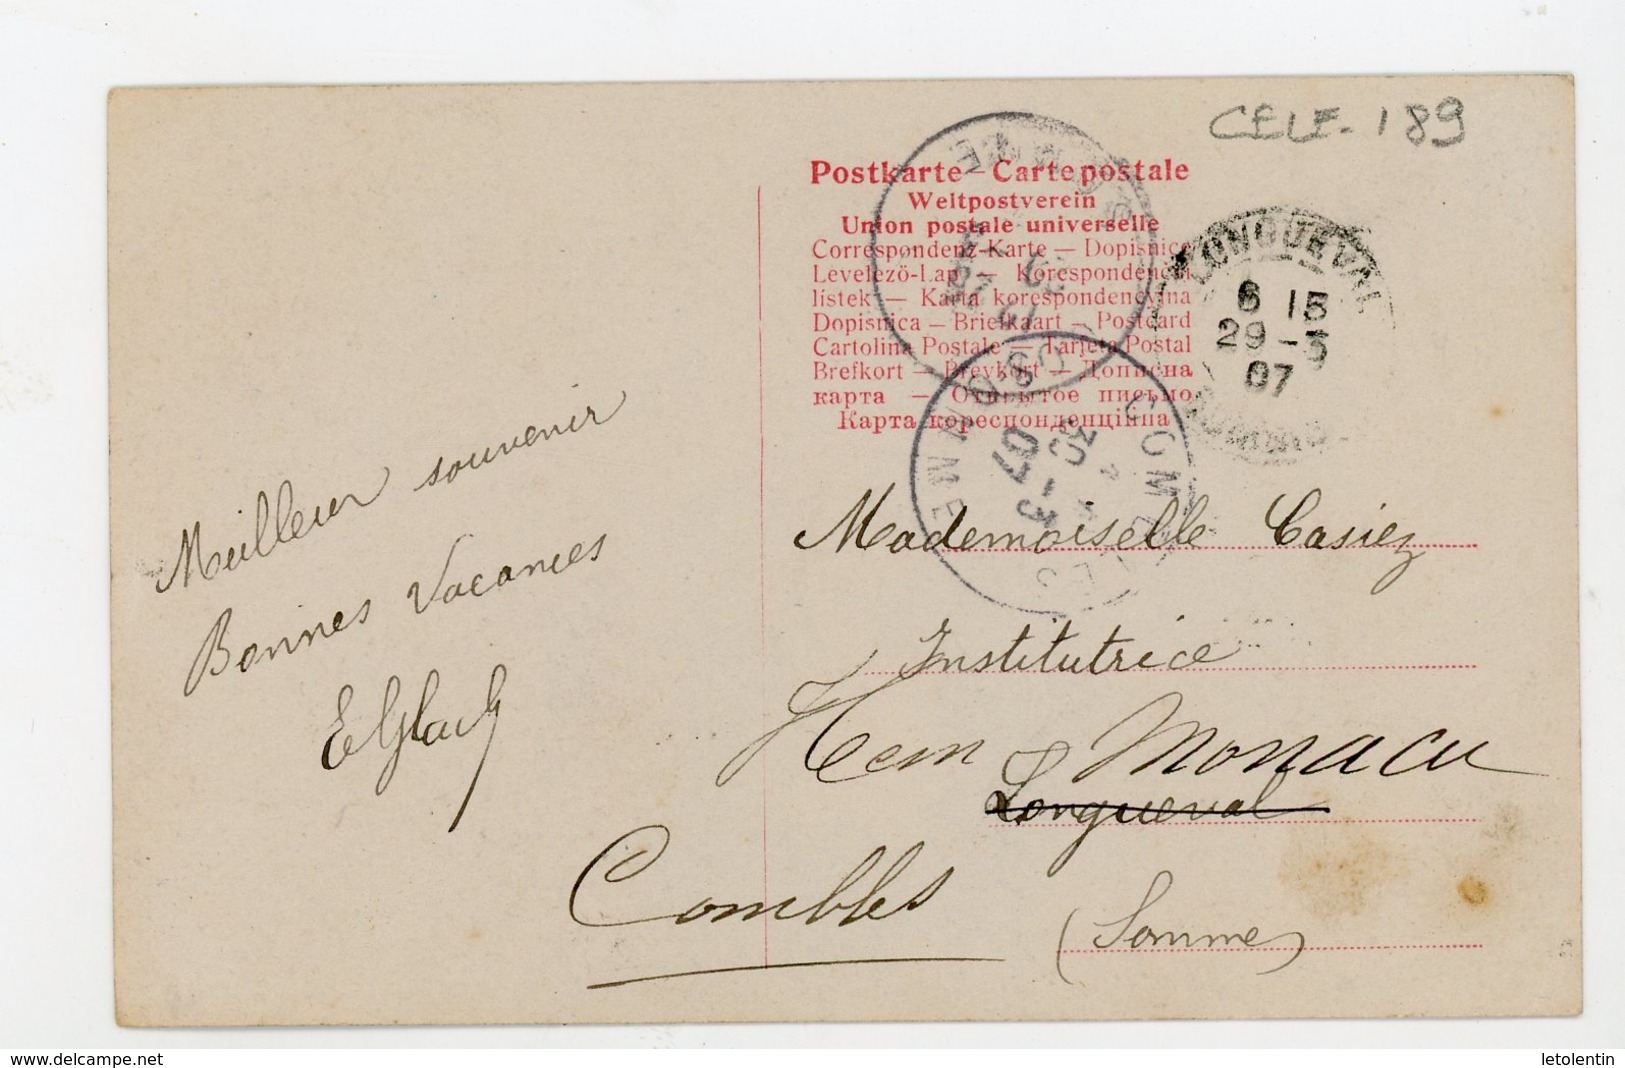 CELE. 189
Postkarte – Carte postale
Weltpostverein
Union postale universelle
Correspondenz-Karte — Dopisnice
Levelező-Lap — Korespondenční
lístek — Karta korespondencyjna
Dopisnica — Briefkaart — Postcard
Cartolina Postale — Tarjeta Postal
Brefkort — Brevkort — Дописна
карта — Открытое письмо
Карта кореспонденційна
LONGUEVAL
6 15
29 - 3
07
COMBLES
SOMME
30
3
07
Meilleur souvenir
Bonnes Vacances
Mademoiselle Casiez
Institutrice
Hem Monacu
Longueval
Combles
(Somme)
www.delcampe.net
letolentin